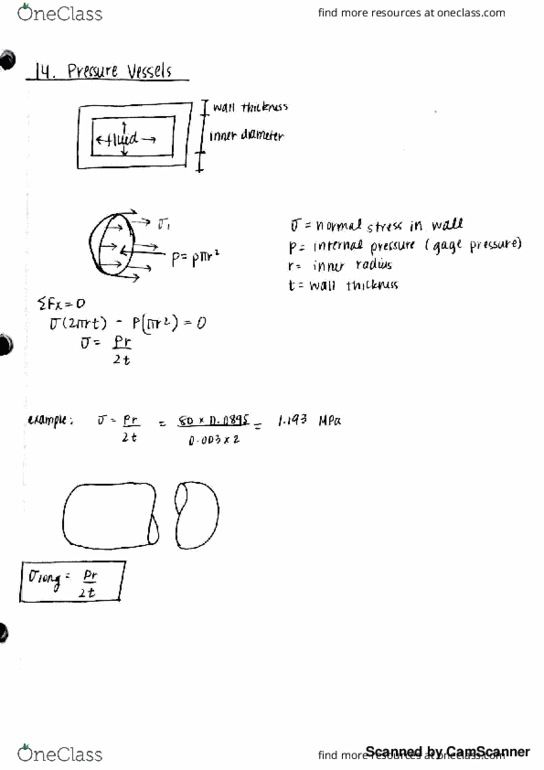 OneClass
find more resources at oneclass.com
14. Pressure Vessels
wall thickness
←fluid→
inner diameter
σ₁
P = pπr²
σ = normal stress in wall
p = internal pressure (gage pressure)
r = inner radius
t = wall thickness
ΣFx = 0
σ(2πrt) - P(πr²) = 0
σ = Pr
2t
example: σ = Pr = 80 x 0.0895 = 1.193 MPa
2t 0.003 x 2
σlong = Pr
2t
OneClass
find more resources at oneclass.com
Scanned by CamScanner